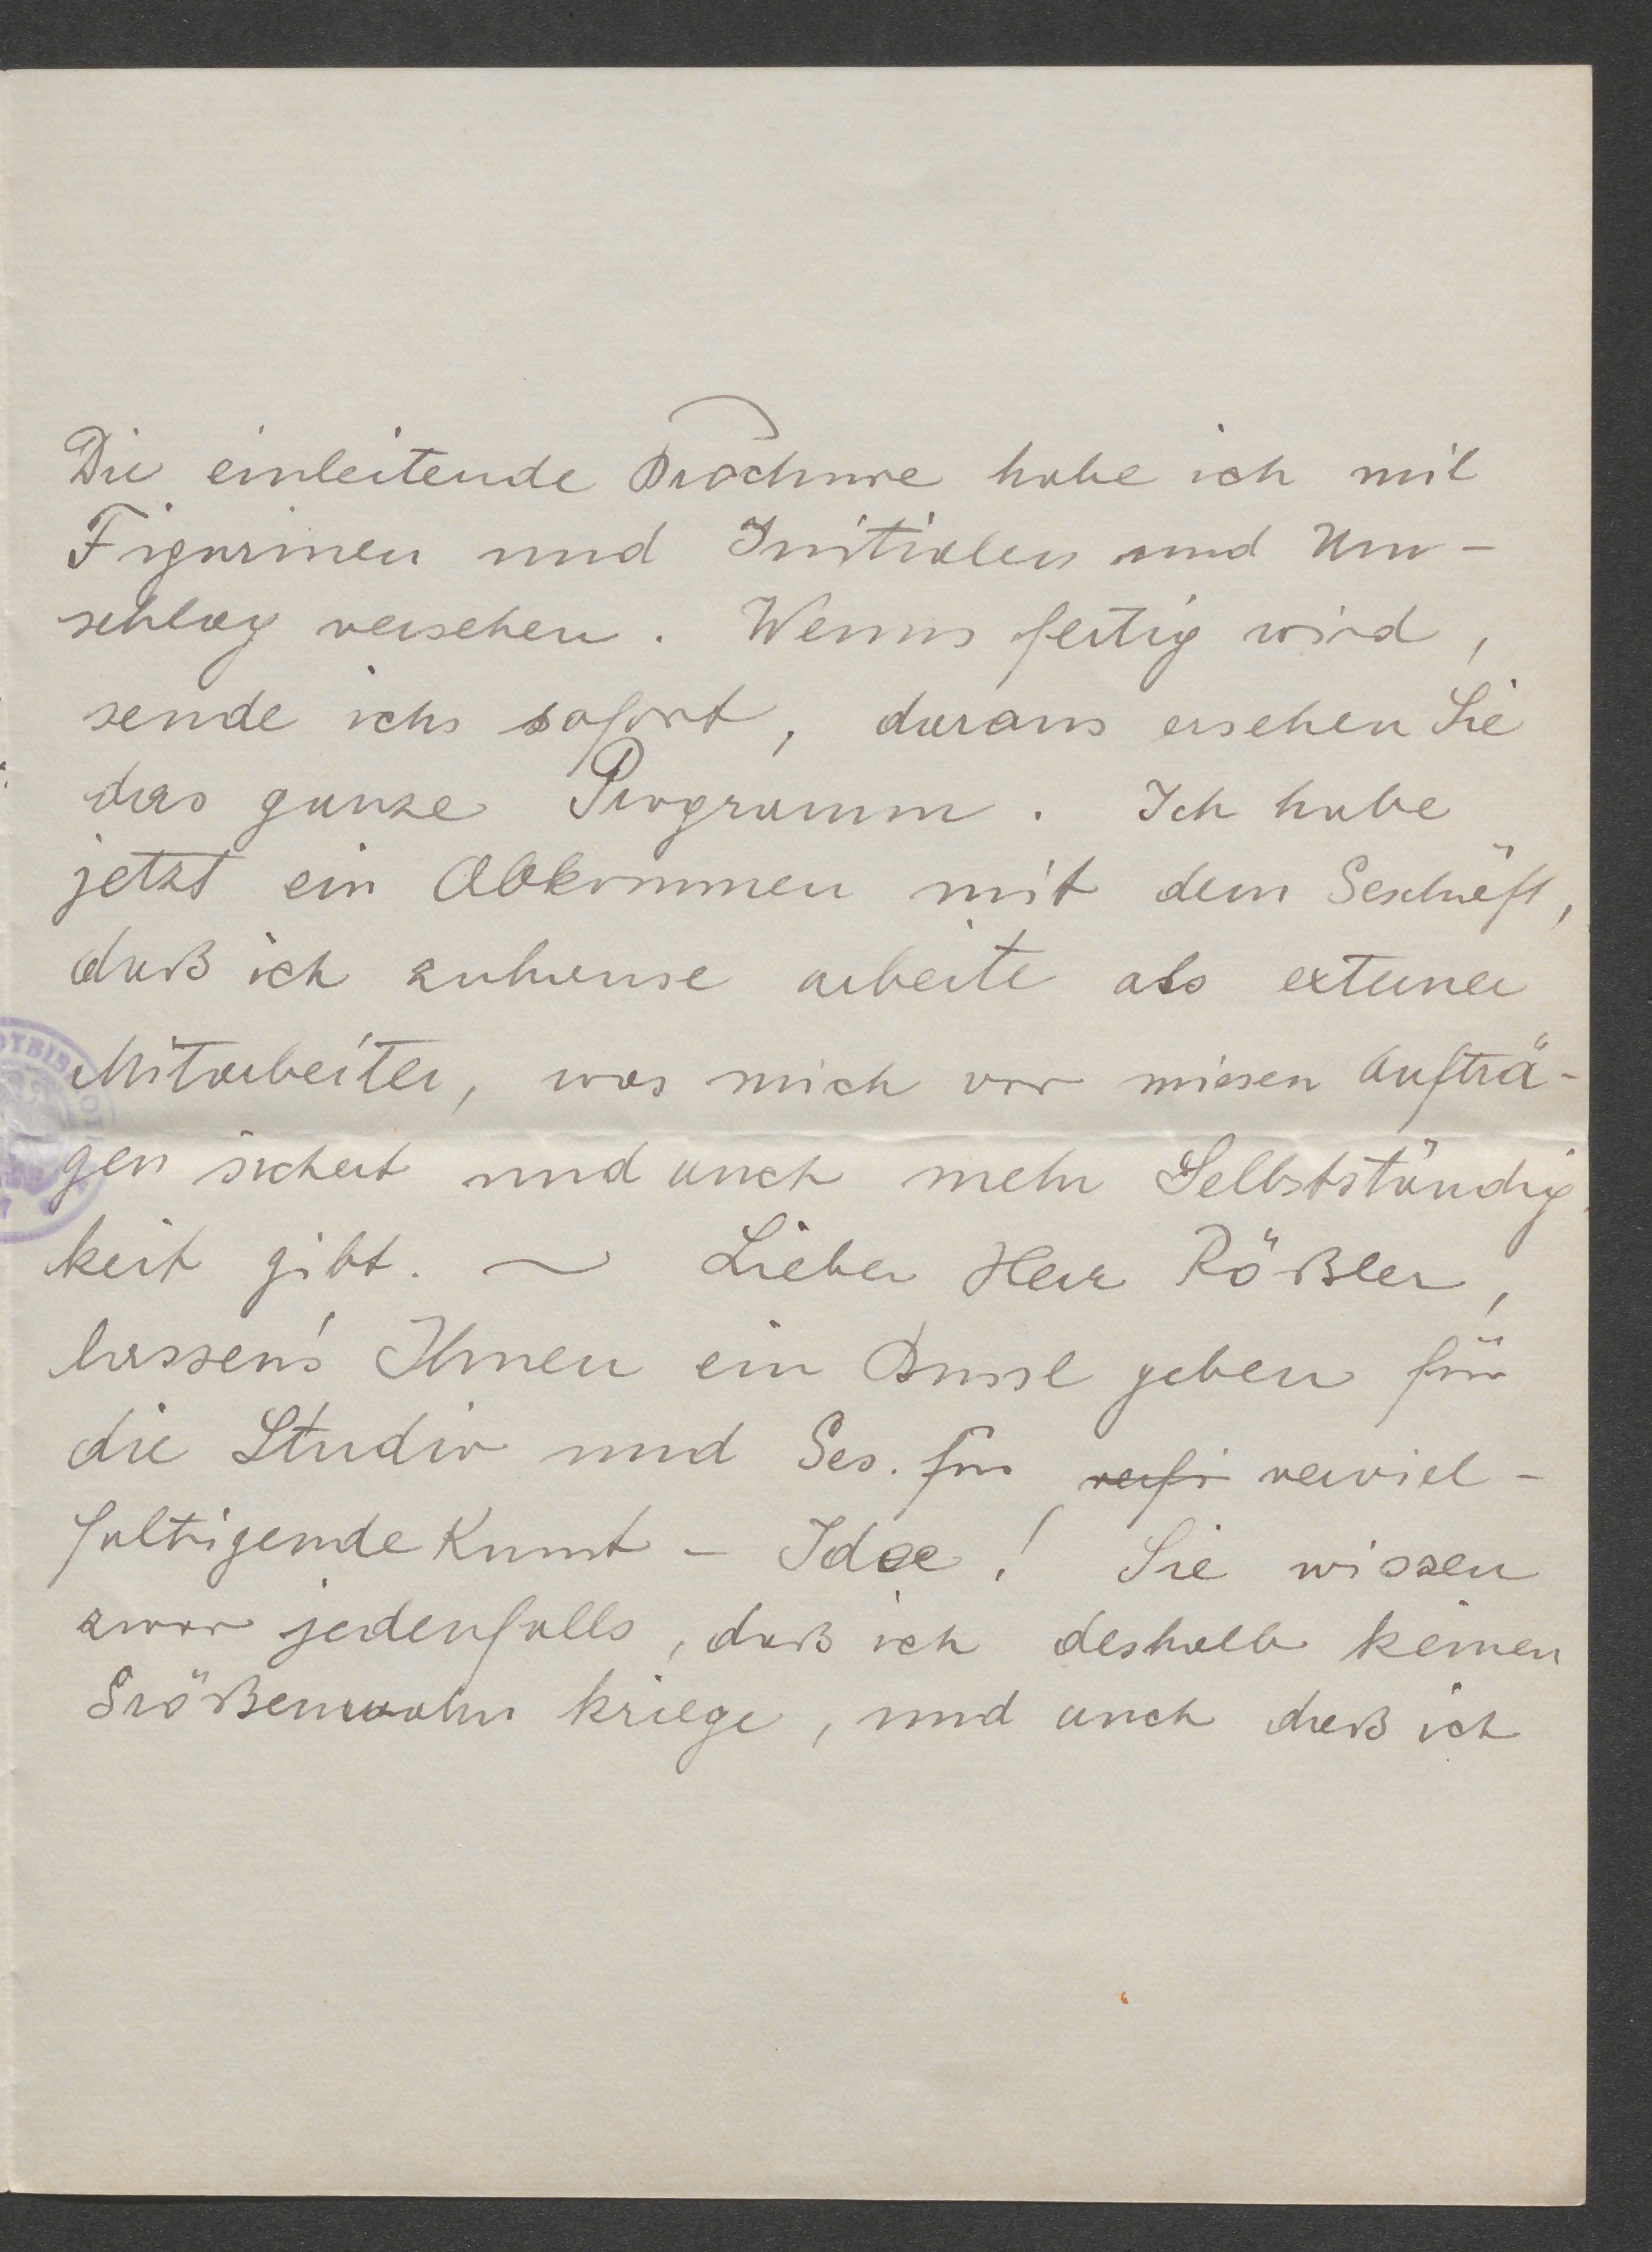 Die einleitende Brochure habe ich mit
Figurinen und Initialen und Um-
schlag versehen. Wenns fertig wird,
sende ichs sofort, daraus ersehen Sie
das ganze Programm. Ich habe
jetzt ein Abkommen mit dem Geschäft,
daß ich zuhause arbeite als externer
Mitarbeiter, was mich vor miesen Aufträ-
gen sichert und auch mehr Selbstständig
keit gibt. ~ Lieber Herr Rößler,
lassen's Ihnen ein Bussl geben für
die Studio und Ges. für verfi verviel-
faltigende Kunst - Idee! Sie wissen
zwar jedenfalls, daß ich deshalb keinen
Größenwahn kriege, und auch daß ich